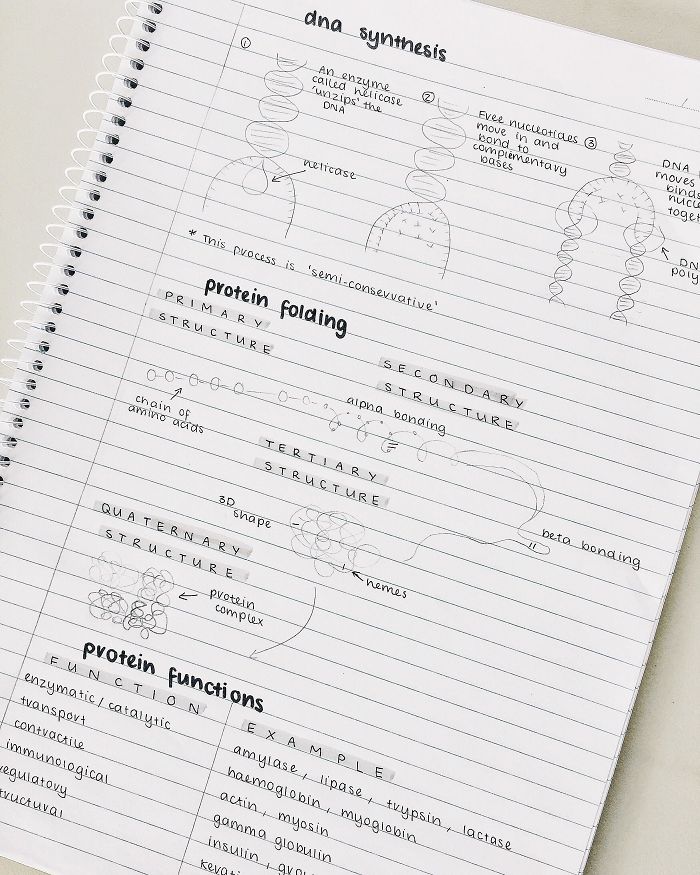 dna synthesis
①
An enzyme
called helicase
'unzips' the
DNA
helicase
②
Free nucleotides
move in and
bond to
complementary
bases
③
DNA
moves
binds
* This process is 'semi-conservative'
protein folding
PRIMARY
STRUCTURE
chain of
amino acids
SECONDARY
STRUCTURE
alpha bonding
beta bonding
TERTIARY
STRUCTURE
3D
shape
hemes
QUATERNARY
STRUCTURE
protein
complex
protein functions
FUNCTION
enzymatic/catalytic
transport
contractile
immunological
regulatory
EXAMPLE
amylase, lipase, trypsin, lactase
haemoglobin, myoglobin
actin, myosin
gamma globulin
insulin,